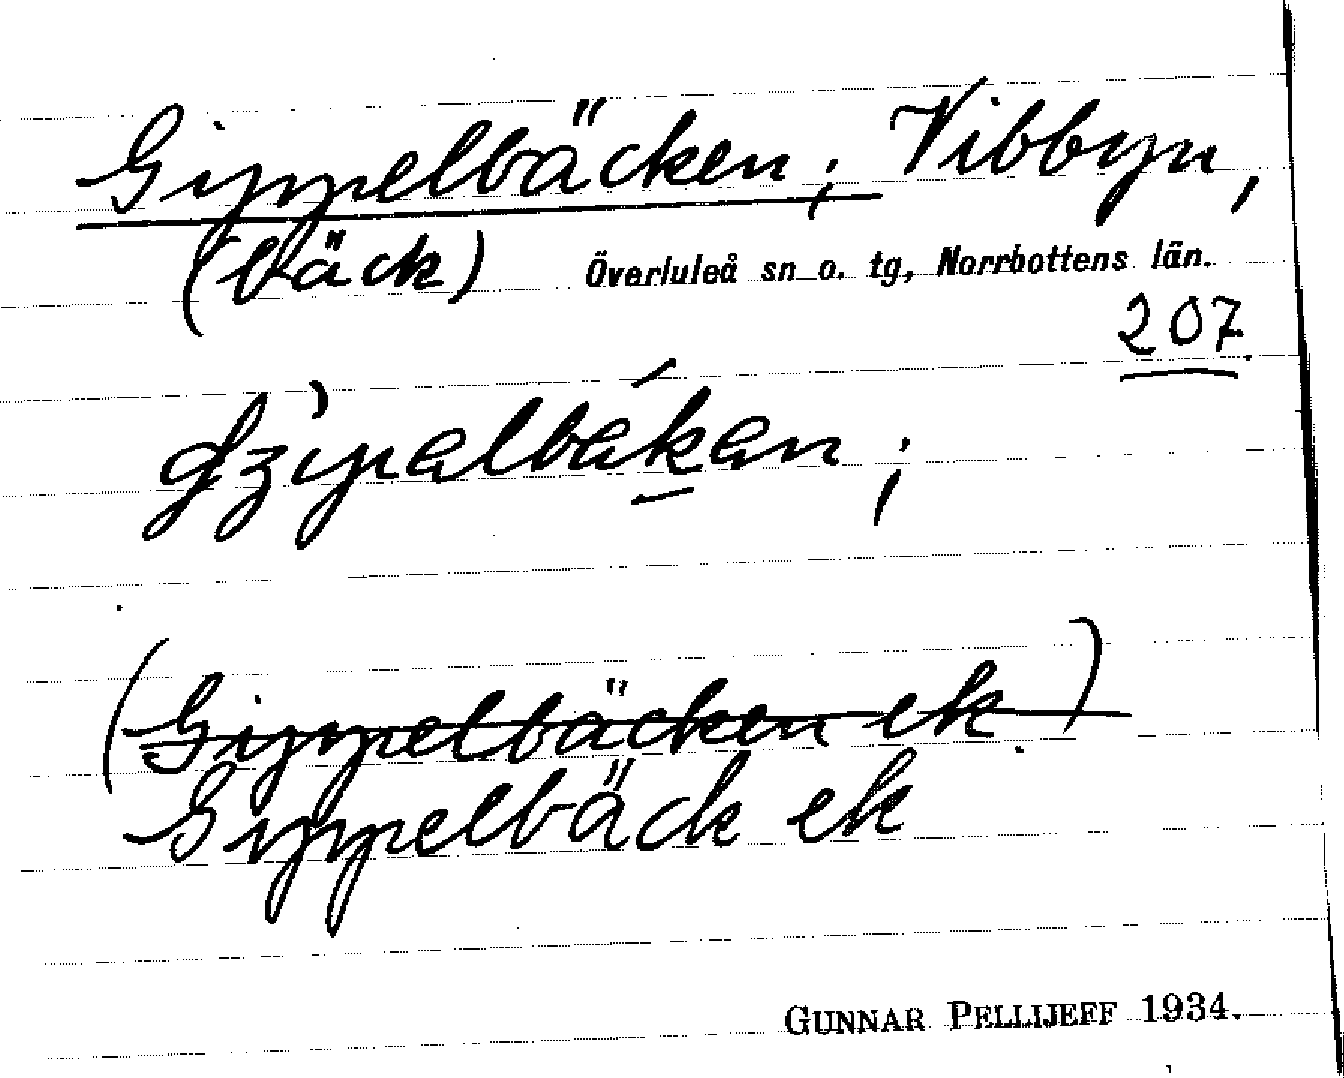 Gippelbäcken; Vibbyn,
(bäck) Överluleå sn o. tg, Norrbottens län.
207
(Gippelbäcken ek.)
Gippelbäck ek
GUNNAR PELLIJEFF 1934.